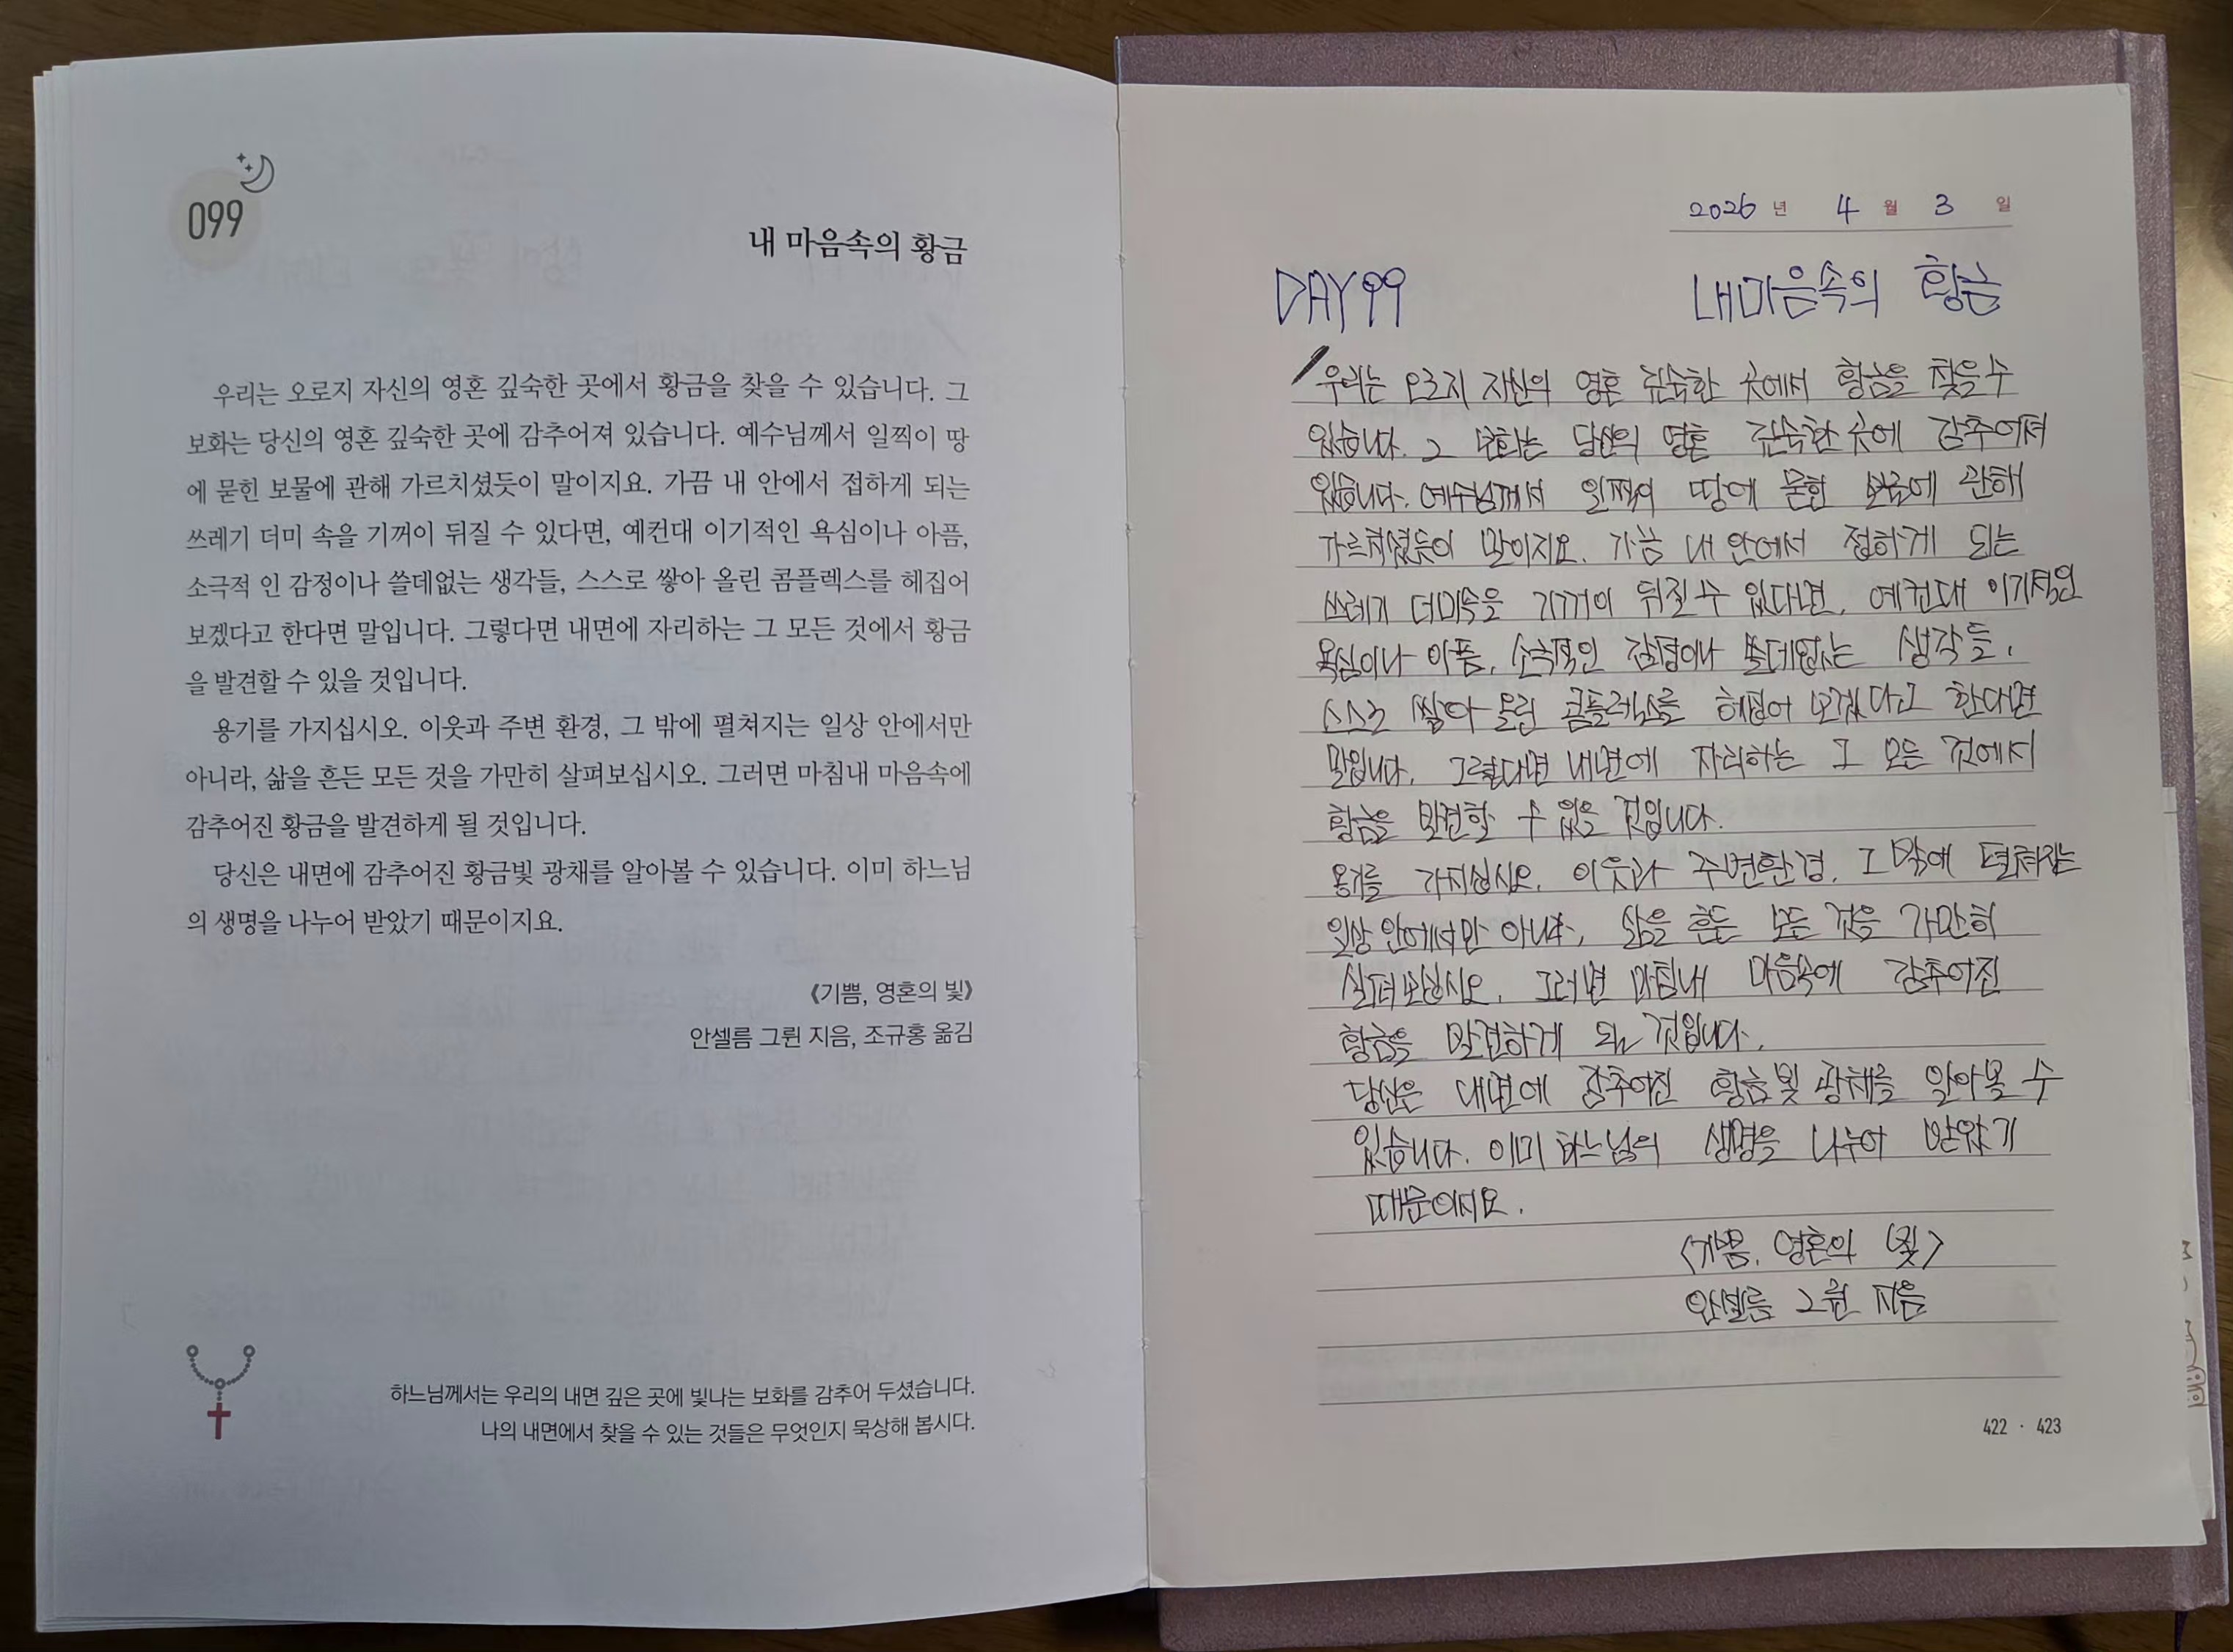 099
내 마음속의 황금
우리는 오로지 자신의 영혼 깊숙한 곳에서 황금을 찾을 수 있습니다. 그
보화는 당신의 영혼 깊숙한 곳에 감추어져 있습니다. 예수님께서 일찍이 땅
에 묻힌 보물에 관해 가르치셨듯이 말이지요. 가끔 내 안에서 접하게 되는
쓰레기 더미 속을 기꺼이 뒤질 수 있다면, 예컨대 이기적인 욕심이나 아픔,
소극적 인 감정이나 쓸데없는 생각들, 스스로 쌓아 올린 콤플렉스를 헤집어
보겠다고 한다면 말입니다. 그렇다면 내면에 자리하는 그 모든 것에서 황금
을 발견할 수 있을 것입니다.
용기를 가지십시오. 이웃과 주변 환경, 그 밖에 펼쳐지는 일상 안에서만
아니라, 삶을 흔든 모든 것을 가만히 살펴보십시오. 그러면 마침내 마음속에
감추어진 황금을 발견하게 될 것입니다.
당신은 내면에 감추어진 황금빛 광채를 알아볼 수 있습니다. 이미 하느님
의 생명을 나누어 받았기 때문이지요.
《기쁨, 영혼의 빛》
안셀름 그륀 지음, 조규홍 옮김
하느님께서는 우리의 내면 깊은 곳에 빛나는 보화를 감추어 두셨습니다.
나의 내면에서 찾을 수 있는 것들은 무엇인지 묵상해 봅시다.
2026 년 4 월 3 일
DAY 99 내마음속의 황금
우리는 오로지 자신의 영혼 깊숙한 곳에서 황금을 찾을 수
있습니다. 그 보화는 당신의 영혼 깊숙한 곳에 감추어져
있습니다. 예수님께서 일찍이 땅에 묻힌 보물에 관해
가르치셨듯이 말이지요. 가끔 내 안에서 접하게 되는
쓰레기 더미속을 기꺼이 뒤질 수 있다면, 예컨대 이기적인
욕심이나 아픔, 소극적인 감정이나 쓸데없는 생각들,
스스로 쌓아 올린 콤플렉스를 헤집어 보겠다고 한다면
말입니다. 그렇다면 내면에 자리하는 그 모든 것에서
황금을 발견할 수 있을 것입니다.
용기를 가지십시오. 이웃과 주변환경, 그 밖에 펼쳐지는
일상 안에서만 아니라, 삶을 흔든 모든 것을 가만히
살펴보십시오. 그러면 마침내 마음속에 감추어진
황금을 발견하게 될 것입니다.
당신은 내면에 감추어진 황금빛 광채를 알아볼 수
있습니다. 이미 하느님의 생명을 나누어 받았기
때문이지요.
<기쁨, 영혼의 빛>
안셀름 그륀 지음
422 · 423